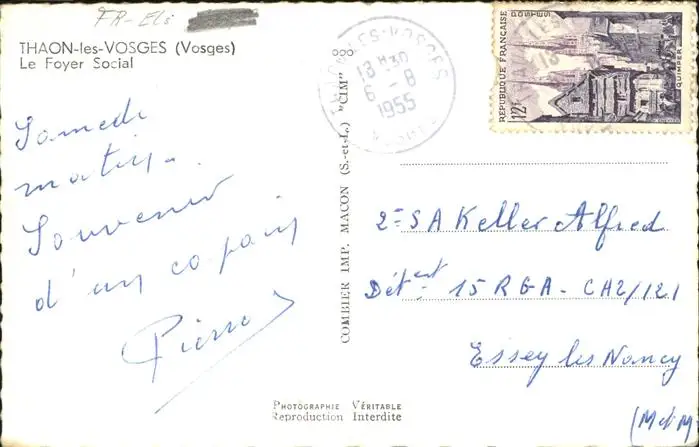 FR-Els
THAON-les-VOSGES (Vosges)
Le Foyer Social
Samedi
matin.
Souvenir
d'un copain
Pierre
COMBIER IMP. MACON (S.-et-L.) "CIM"
18 H 30
6 - 8
1955
REPUBLIQUE FRANÇAISE
POSTES
12F
QUIMPER
2e SA Keller Alfred
Dét ent 15 RGA - CA2/121
Essey les Nancy
(M et M
PHOTOGRAPHIE VÉRITABLE
Reproduction Interdite